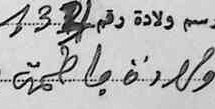 رسم ولادة رقم 13
ولادة فاطمة